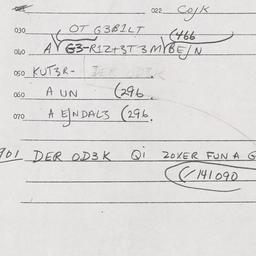 022 COJK
030 OT G3B1LT
040 A G3-R1Z+3T3M BEJN (466
050 KUT3R-
060 A UN (296.
070 A EJNDAL3 (296.
901 DER OD3K Qi ZOXER FUN A G
(/141090